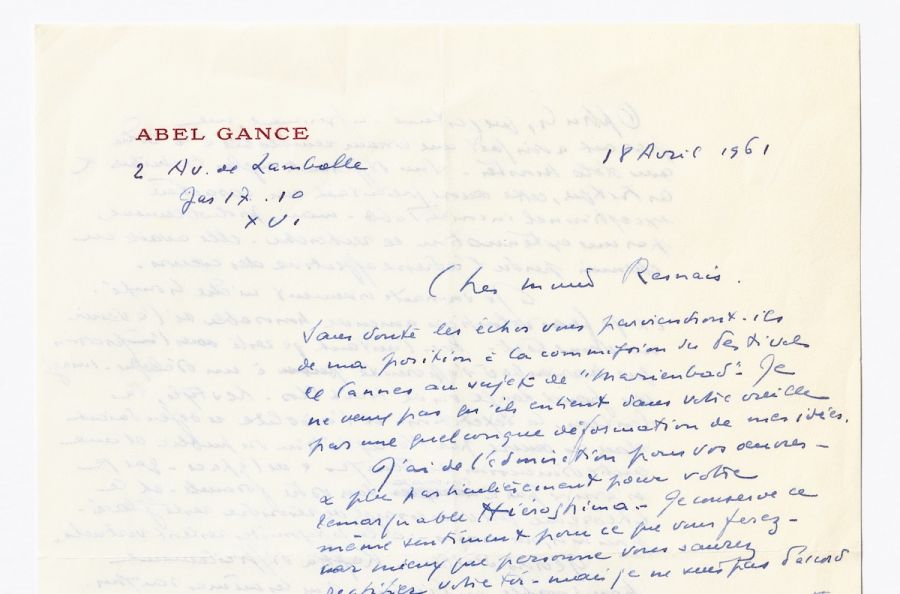 ABEL GANCE
2 Av. de Lamballe
Jas 17.10
XVI
18 Avril 1961
Cher Resnais.
Sans doute les échos vous parviendront-ils
de ma position à la commission du Festival
de Cannes au sujet de "Marienbad". Je
ne veux pas qu'ils entrent dans votre oreille
par une quelconque déformation de mes idées.
J'ai de l'admiration pour vos œuvres -
& plus particulièrement pour votre
remarquable Hiroshima - Je conserve ce
même sentiment pour ce que vous ferez -
car mieux que personne vous saurez
rectifier votre tir - mais je ne suis pas d'accord